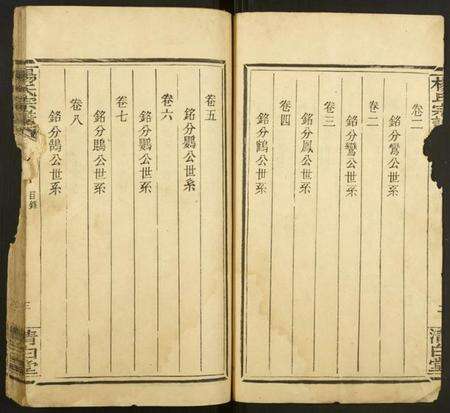 楊氏宗譜
二
清白堂
卷二
銘分鸞公世系
卷二
銘分鸞公世系
卷三
銘分鳳公世系
卷四
銘分鶴公世系
卷五
銘分鸚公世系
卷六
銘分鸚公世系
卷七
銘分公世系
卷八
銘分鵠公世系
楊氏宗譜
目錄
三
清白堂